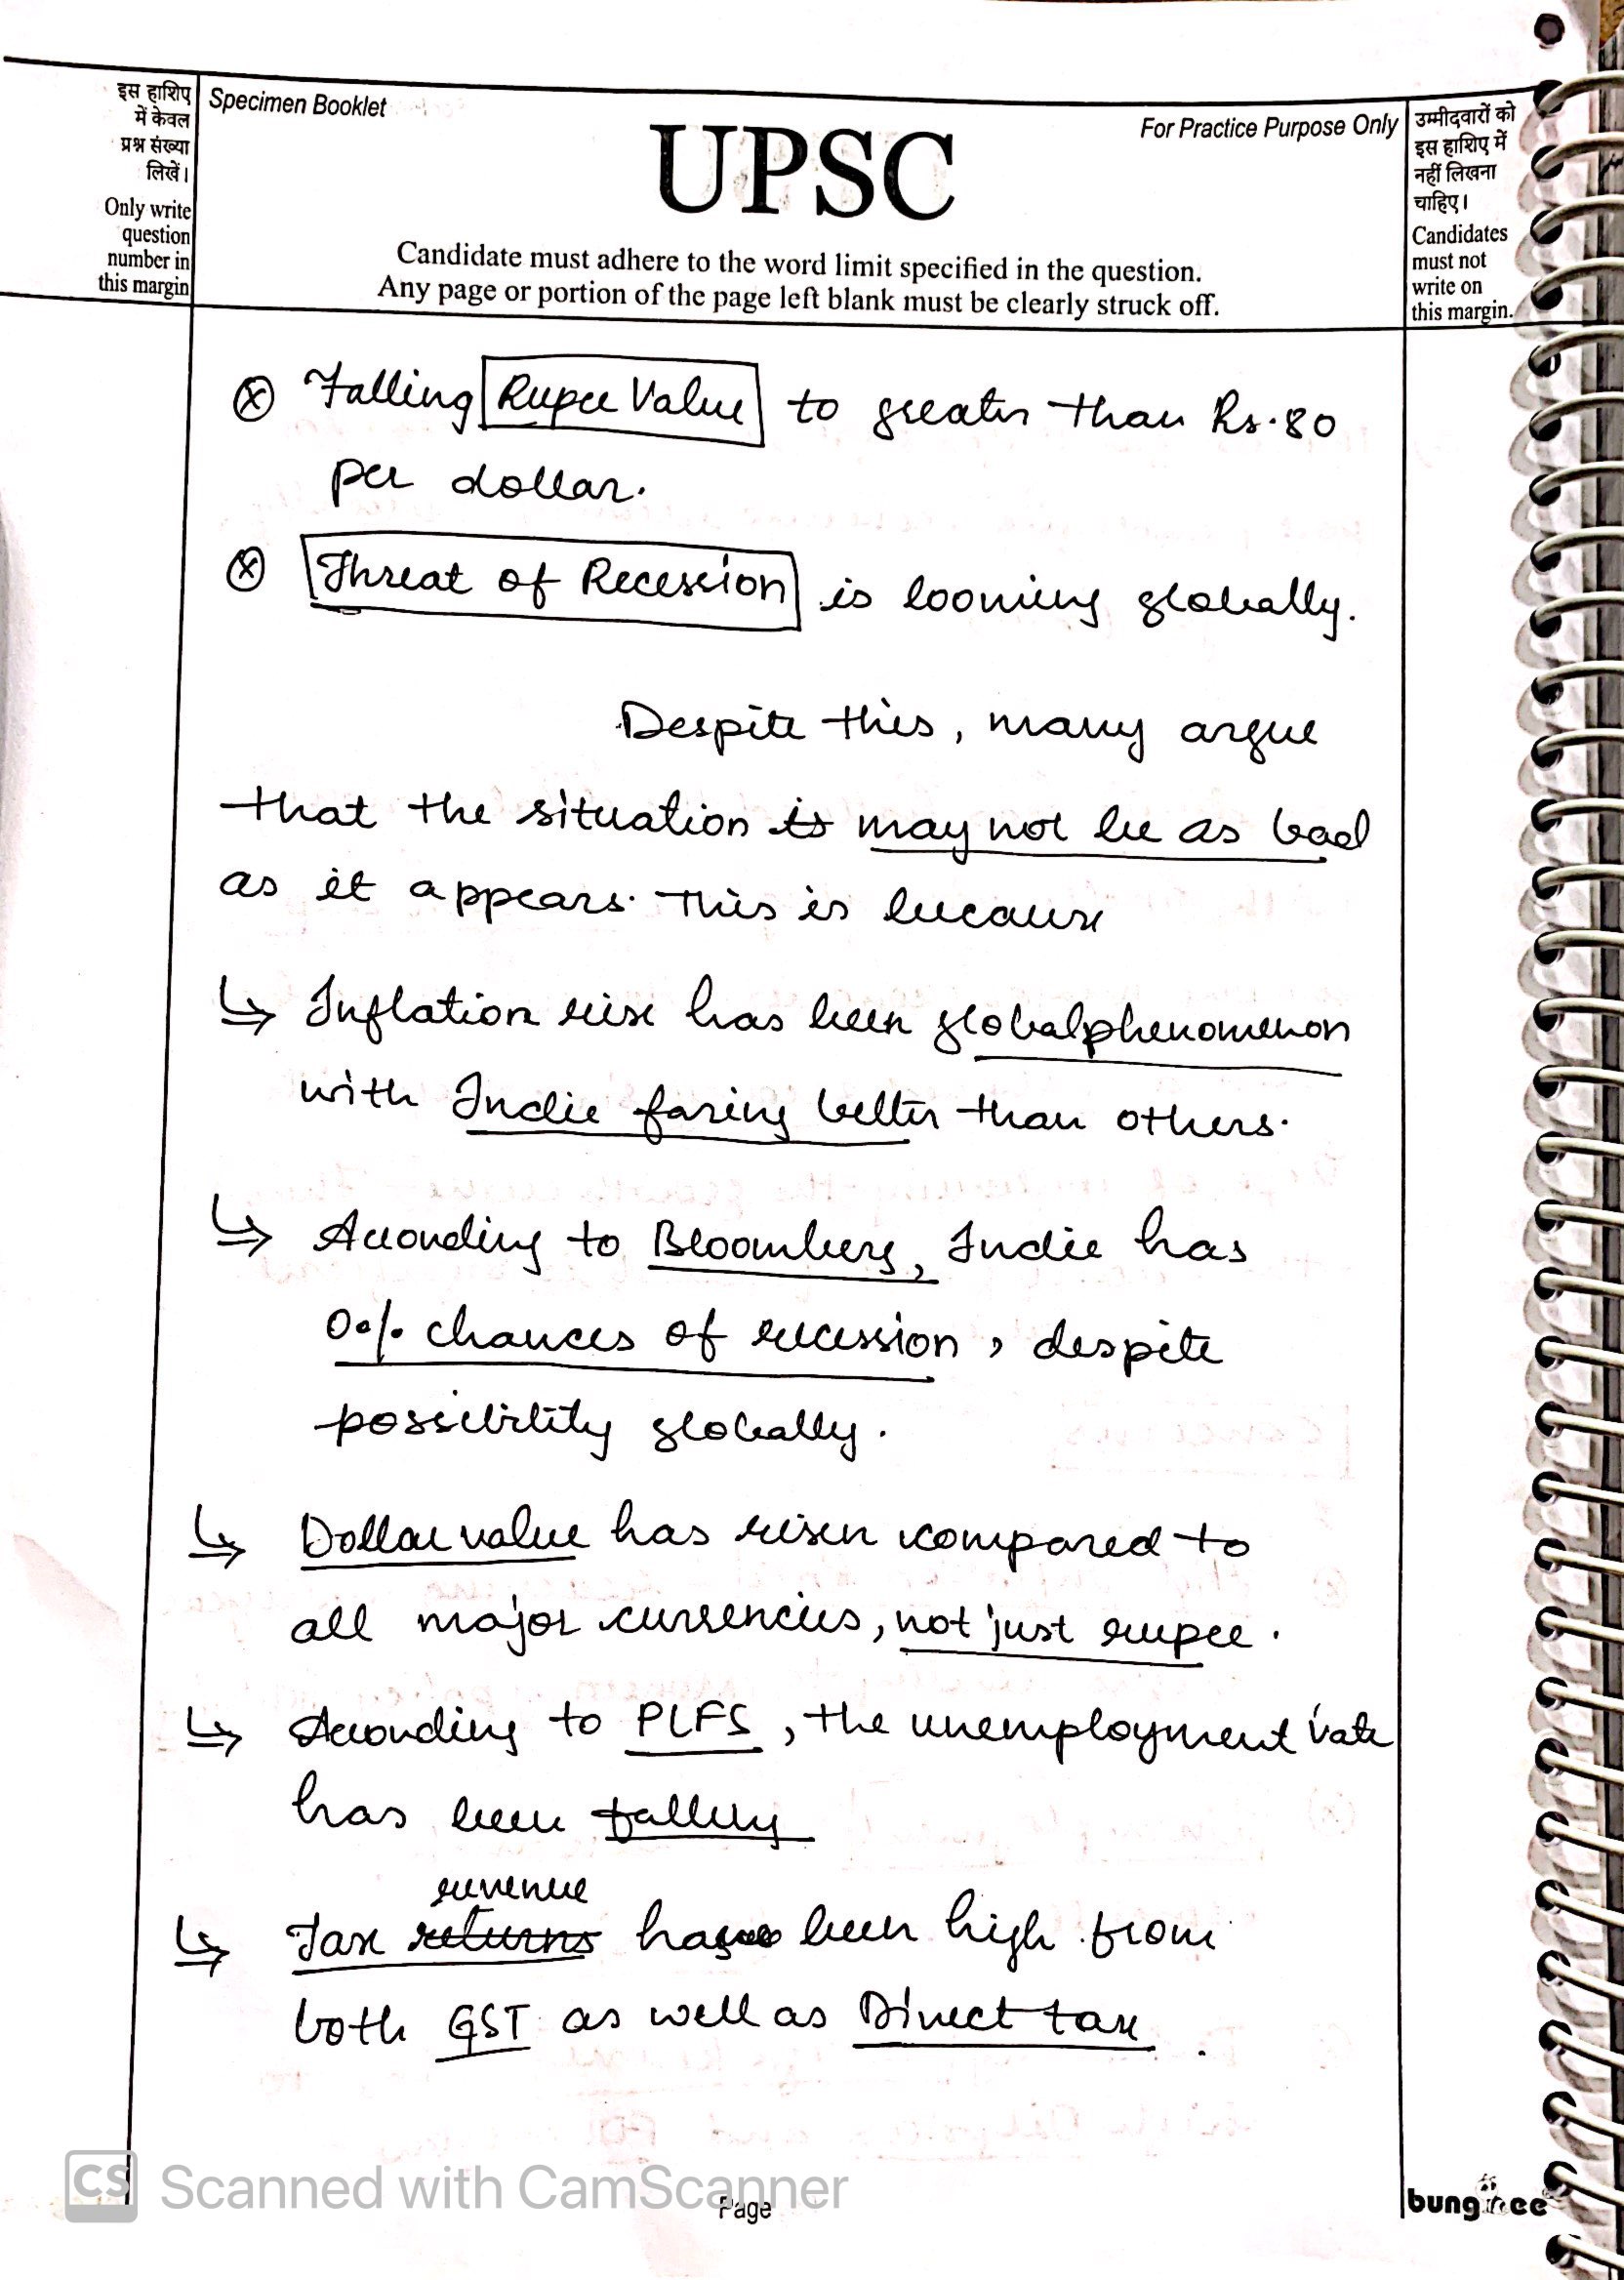 इस हाशिए
में केवल
प्रश्न संख्या
लिखें।
Only write
question
number in
this margin
Specimen Booklet
UPSC
For Practice Purpose Only
Candidate must adhere to the word limit specified in the question.
Any page or portion of the page left blank must be clearly struck off.
उम्मीदवारों को
इस हाशिए में
नहीं लिखना
चाहिए।
Candidates
must not
write on
this margin.
ⓧ Falling Rupee Value to greater than Rs.80
per dollar.
ⓧ Threat of Recession is looming globally.
Despite this, many argue
that the situation is may not be as bad
as it appears. This is because
↳ Inflation rise has been global phenomenon
with India faring better than others.
↳ According to Bloomberg, India has
0% chances of recession, despite
possibility globally.
↳ Dollar value has risen compared to
all major currencies, not just rupee.
↳ According to PLFS, the unemployment rate
has been falling
revenue
↳ Tax returns has been high from
both GST as well as Direct tax.
CS Scanned with CamScanner
Page